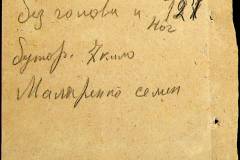 без голови и ног 127
бутор. 2 кило
Маларенко семен